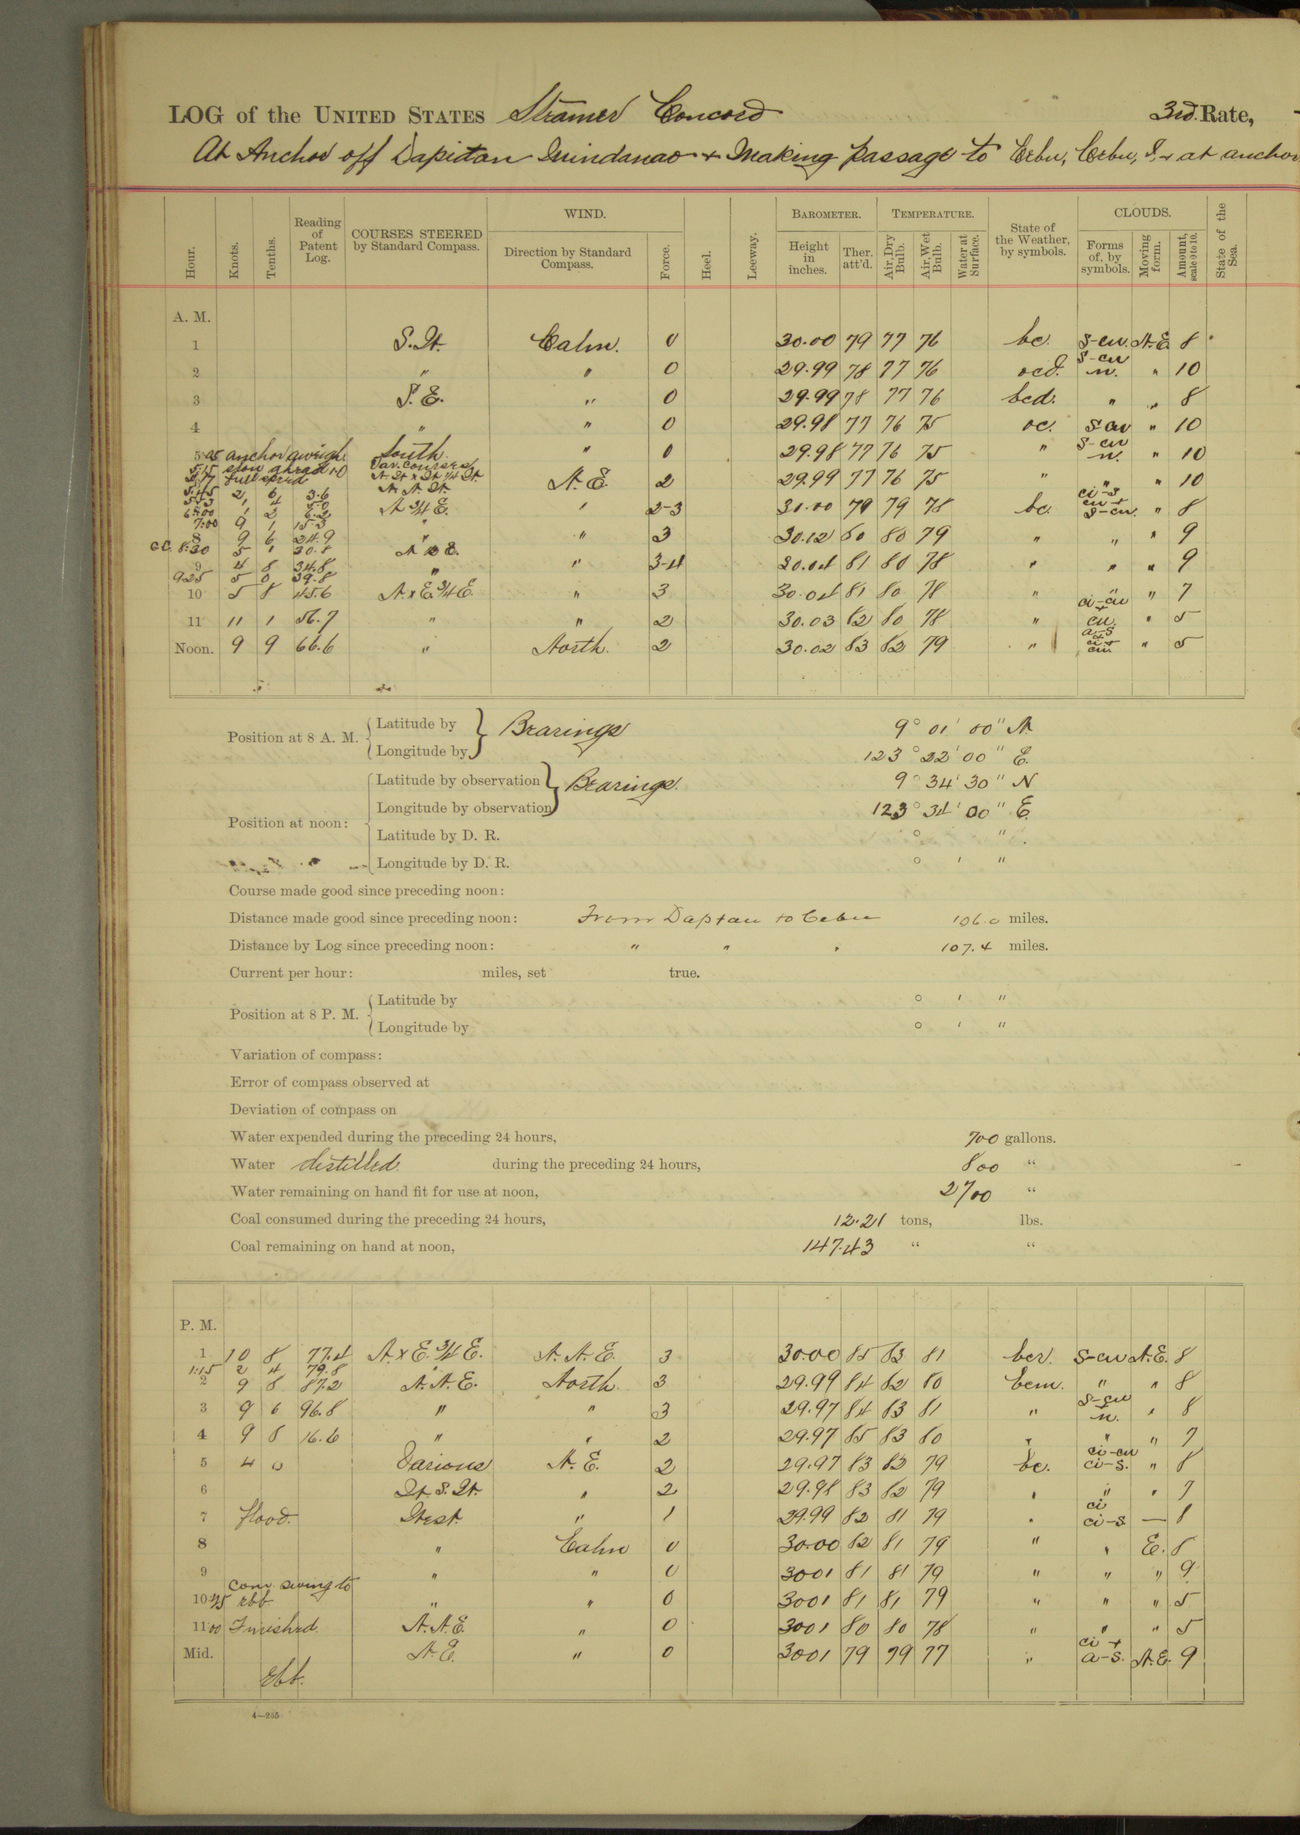 LOG of the UNITED STATES Steamer Concord 3rd Rate,
At Anchor off Dapitan Mindanao & Making passage to Cebu, Cebu, I, & at anchor
Hour. Knots. Tenths. Reading of Patent Log. COURSES STEERED by Standard Compass. WIND. Direction by Standard Compass. Force. Heel. Leeway. BAROMETER. Height in inches. Ther. att'd. TEMPERATURE. Air, Dry Bulb. Air, Wet Bulb. Water at Surface. State of the Weather, by symbols. CLOUDS. Forms of, by symbols. Moving form. Amount, scale 0 to 10. State of the Sea.
A. M.
1 S.W. Calm. 0 30.00 79 77 76 bc. s-cu. N.E. 8
2 " " 0 29.99 78 77 76 ocd. s-cu n. " 10
3 S.E. " 0 29.99 78 77 76 bcd. " " 8
4 " " 0 29.98 77 76 75 oc. s-cu " 10
5 05 anchor aweigh South " 0 29.98 77 76 75 " s-cu n. " 10
5.15 slow ahead Var. courses
5.17 full speed N.E. 2 29.99 77 76 75 " " " 10
5.45 2 6 3.6 N. N. W.
6:00 1 2 6.2 N 3/4 E. ' 2-3 30.00 79 79 78 bc. ci-s cu + s-cu. " 8
7:00 9 1 15.3
8 9 6 24.9 " " 3 30.12 80 80 79 " " " 9
C.C. 8:30 5 1 30.8
9 4 8 34.8 " " 3-4 30.04 81 80 78 " " " 9
9 25 5 0 39.8
10 5 8 45.6 N x E. 3/4 E. " 3 30.04 81 80 78 " " " 7
11 11 1 56.7 " " 2 30.03 82 80 78 " ci-cu + cu. " 5
Noon. 9 9 66.6 " North. 2 30.02 83 82 79 " a-s ci + cu " 5
Position at 8 A. M. Latitude by Bearings 9° 01' 00" N
Longitude by 123° 22' 00" E.
Position at noon: Latitude by observation Bearings. 9° 34' 30" N
Longitude by observation 123° 34' 00" E.
Latitude by D. R. ° "
Longitude by D. R. ° ' "
Course made good since preceding noon:
Distance made good since preceding noon: From Daptan to Cebu 106.0 miles.
Distance by Log since preceding noon: " " " 107.4 miles.
Current per hour: miles, set true.
Position at 8 P. M. Latitude by ° ' "
Longitude by ° ' "
Variation of compass:
Error of compass observed at
Deviation of compass on
Water expended during the preceding 24 hours, 700 gallons.
Water distilled during the preceding 24 hours, 800 "
Water remaining on hand fit for use at noon, 2700 "
Coal consumed during the preceding 24 hours, 12.21 tons, lbs.
Coal remaining on hand at noon, 147.43 " "
P. M.
1 10 8 77.4 N. x E. 3/4 E. N. N. E. 3 30.00 85 83 81 bcr. s-cu N.E. 8
1:15 2 4 79.8
2 9 8 87.2 N. N. E. North. 3 29.99 84 82 80 bcm. " " 8
3 9 6 96.8 " " 3 29.97 84 83 81 " s-cu n. " 8
4 9 8 16.6 " " 2 29.97 85 83 80 " " " 7
5 4 0 Various N. E. 2 29.97 83 82 79 bc. ci-cu ci-s. " 8
6 W. S. W. " 2 29.98 83 82 79 " " " 7
7 flood. West. " 1 29.99 82 81 79 " ci ci-s — 8
8 " Calm 0 30.00 82 81 79 " " E. 8
9 " " 0 3001 81 81 79 " " " 9
com. swing to
10 45 ebb. " " 0 3001 81 81 79 " " " 5
11 00 Finished. N. N. E. " 0 3001 80 80 78 " " " 5
Mid. N. E. " 0 3001 79 79 77 " ci + a-s. N.E. 9
Ebb.
4—255